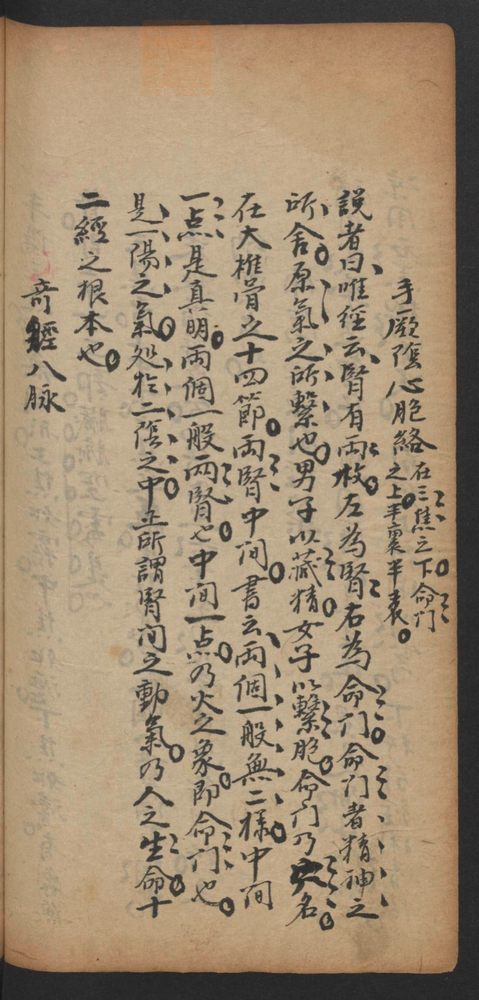 手厥陰心胞絡在三焦之下命門之上半裏半表
說者曰唯經云腎有兩枚左為腎右為命門命門者精神之
所舍原氣之所繫也男子以藏精女子以繫胞命門乃穴名
在大椎骨之十四節兩腎中间書云兩個一般無二樣中间
一点是真明兩個一般兩腎也中间一点乃火之象即命门也
是一陽之氣処於二陰之中正所謂腎间之動氣乃人之生命十
二經之根本也
奇經八脉